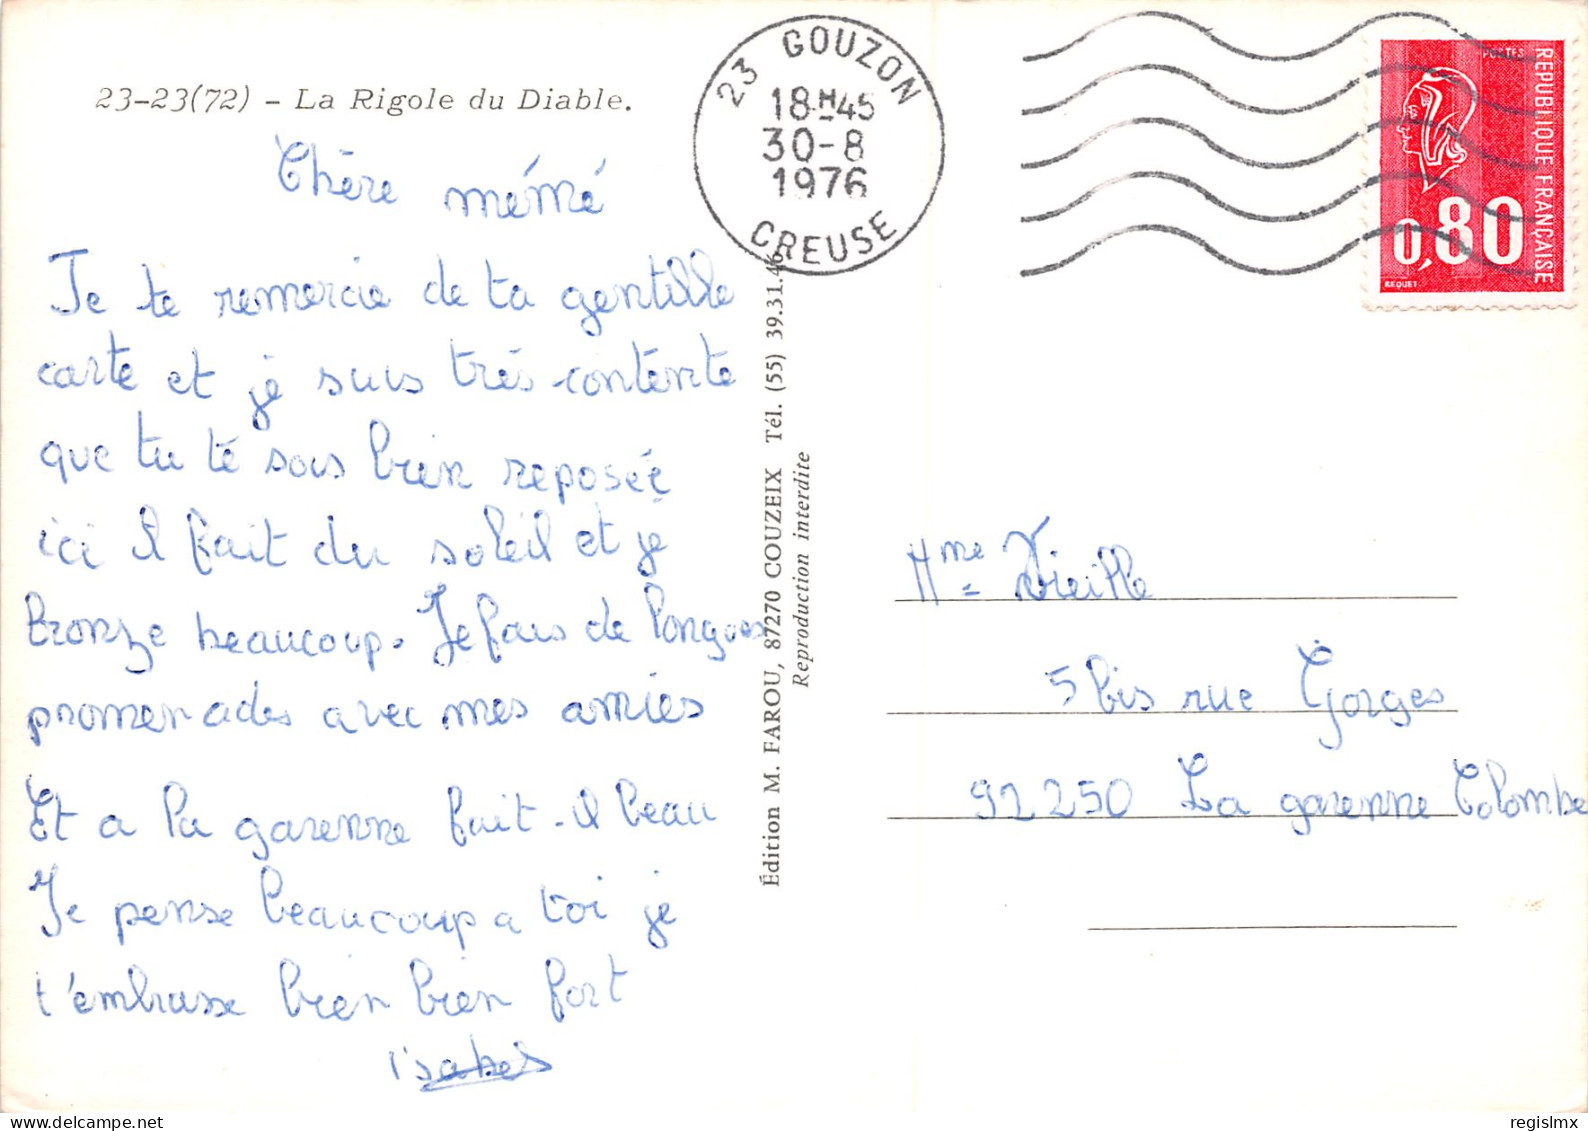 23-23(72) - La Rigole du Diable.
Chère mémé
Je te remercie de ta gentille
carte et je suis très contente
que tu té sois bien reposée
ici il fait du soleil et je
bronze beaucoup. Je fais de longues
promenades avec mes amies
Et a la garenne fait-il beau
Je pense beaucoup a toi je
t'embrasse bien bien fort
Isabel
Édition M. FAROU, 87270 COUZEIX Tél. (55) 39.31.46
Reproduction interdite
23 GOUZON
18H45
30-8
1976
CREUSE
POSTES
REPUBLIQUE FRANÇAISE
0,80
BEQUET
Mme Vieille
5 bis rue Gorges
92250 La garenne Colombe
regislmx